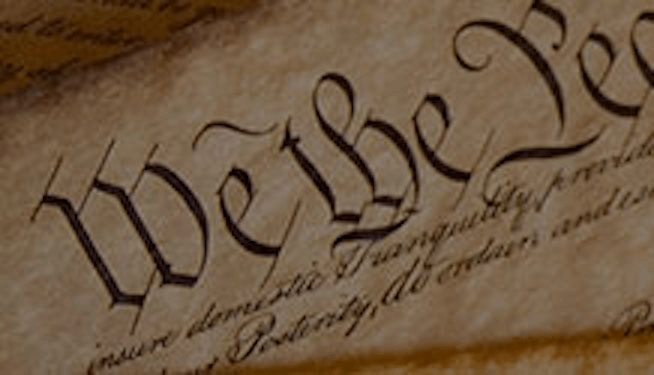 We the Peo
insure domestic Tranquility, provide
our Posterity, do ordain and es